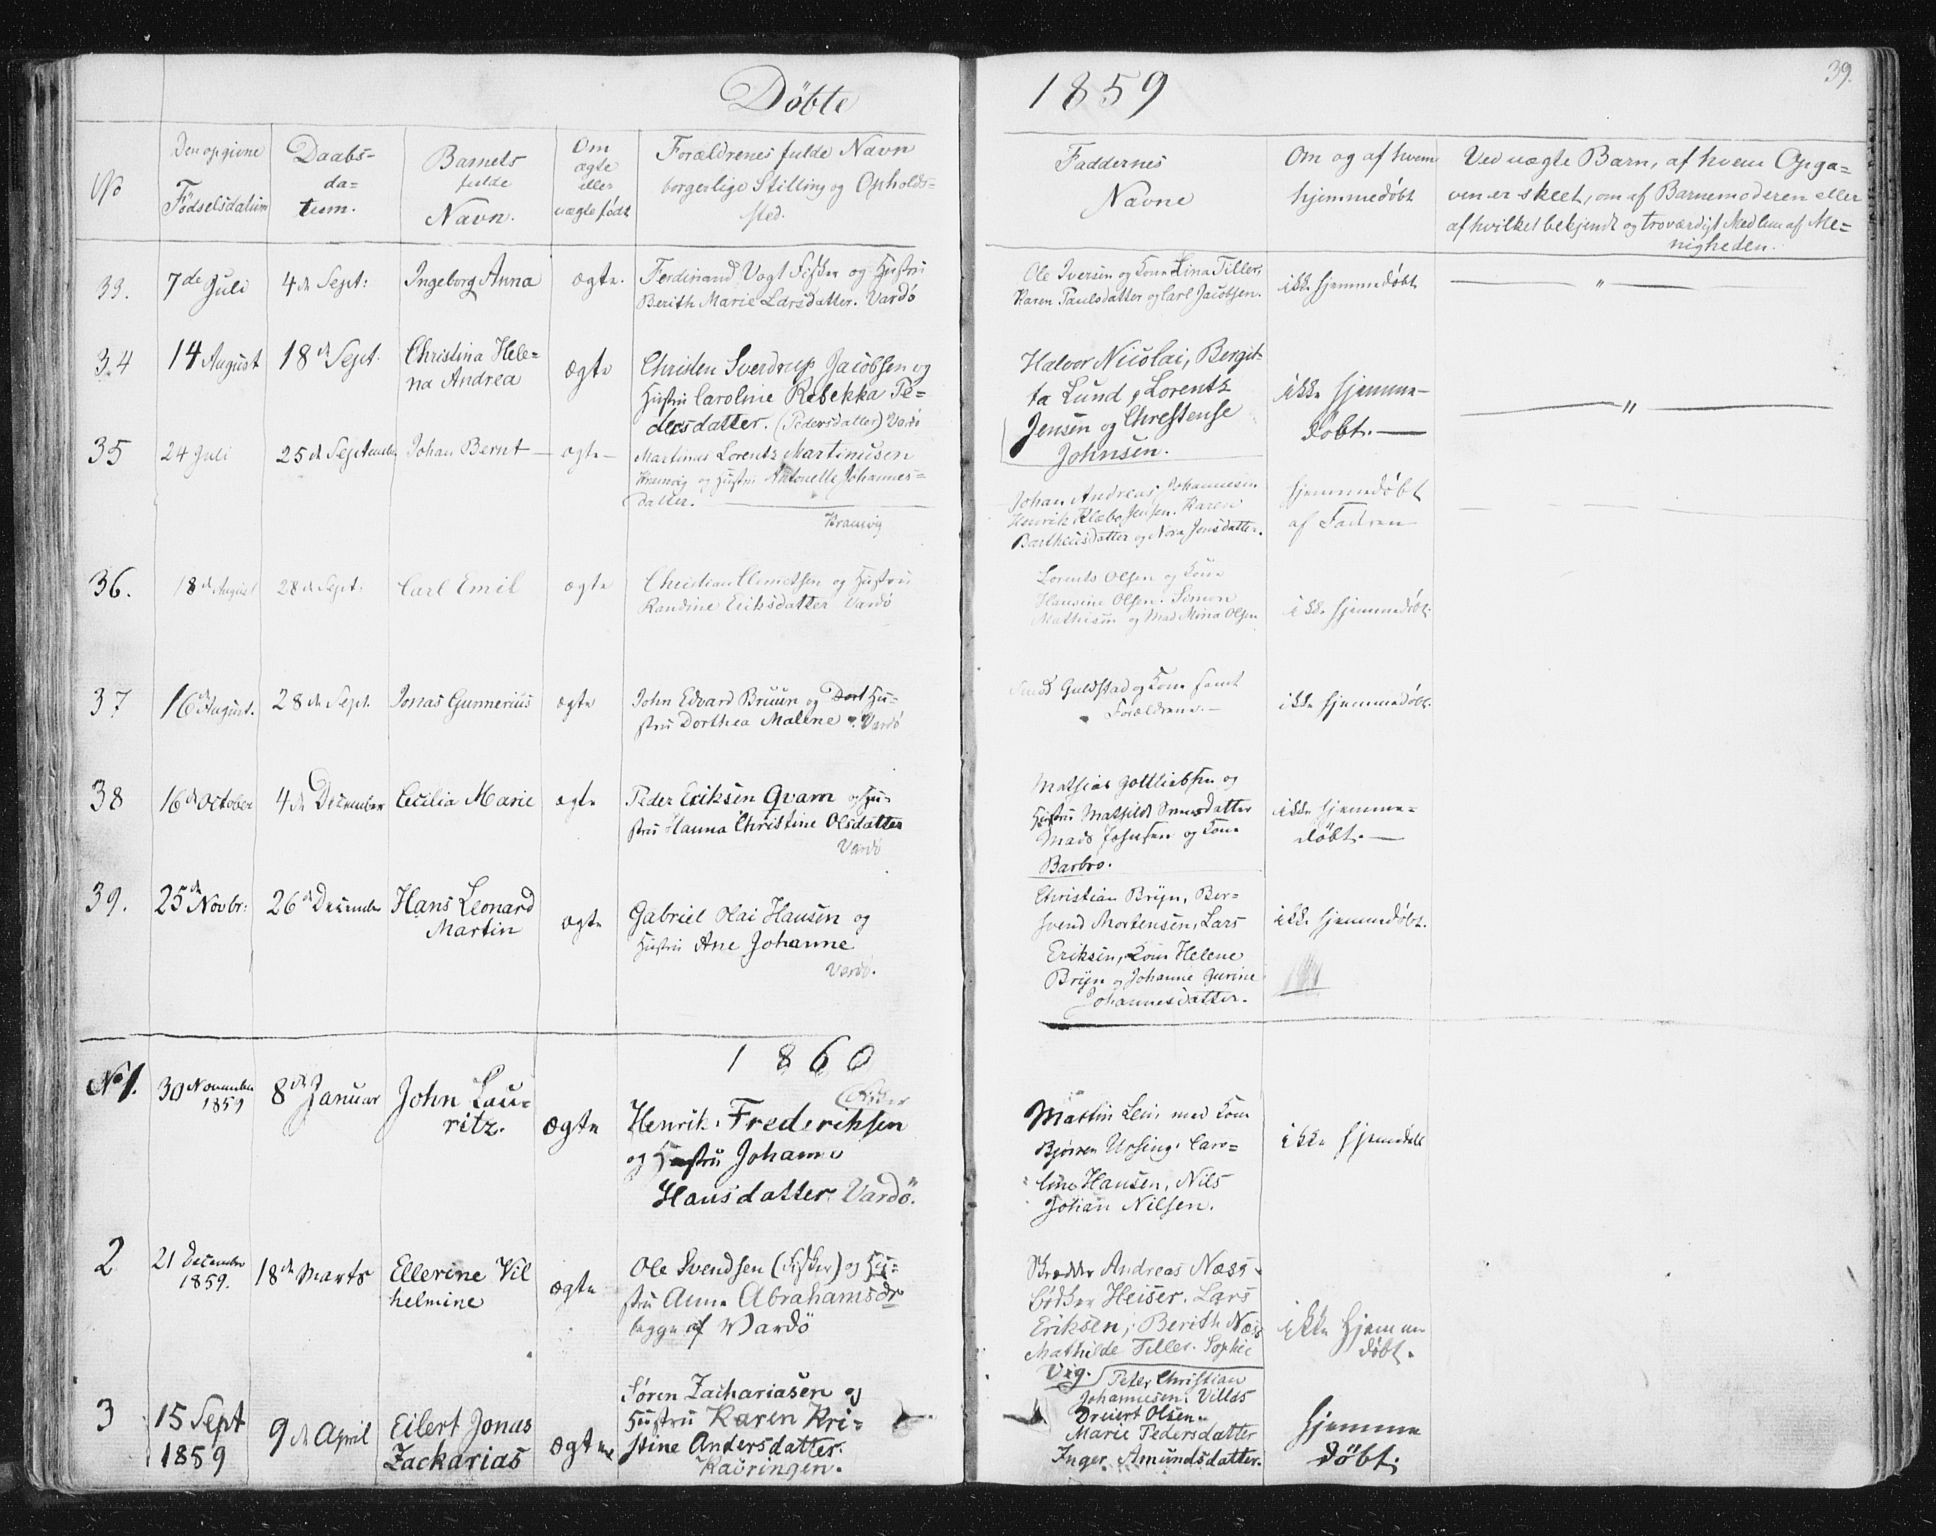 Döbte
1859
39.
No
Den opgivne
Födselsdatum
Daabs-
da-
tum.
Barnets
fulde
Navn.
Om
ægte
eller
uægte født
Forældrenes fulde Navn
borgerlige Stilling og Opholds-
sted.
Faddernes
Navne
Om og af hvem
hjemmedøbt
Ved uægte Barn, af hvem Opga-
ven er skeet, om af Barnemoderen eller
af hvilket bekjendt og troværdigt Medlem af Me-
nigheden.
33.
7de Juli
4de Sept:
Ingeborg Anna
ægte.
Ferdinand Vogt Fisker og Hustru
Berith Marie Larsdatter. Vardö
Ole Iversen og Kone Lina Tiller,
Karen Paulsdatter og Carl Jacobsen.
ikke hjemmedøbt
"
34
14 August
18de Sept.
Christina Hele-
na Andrea
ægte
Christen Sverdrup Jacobsen og
Hustru Caroline Rebekka Pe-
dersdatter. (Pedersdatter) Vardö
Halvor Nicolai, Bergit-
ta Lund, Lorentz
Jensen og Chrestense
Johnsen.
ikke hjemme-
döbt.
"
35
24 Juli
25de September
Johan Bernt
ægte
Martinus Lorentz Martinusen
Kramvig og Hustru Antonette Johannes-
datter.
Kramvig
Johan Andreas Johannesen
Henrik Klæbo Jensen. Karen
Bartheusdatter og Nora Jensdatter.
hjemmedøbt
af Faderen
36.
18de August
28de Sept.
Carl Emil
ægte
Christian Clemetsen og Hustru
Randine Eriksdatter Vardö
Lorents Olsen og Kone
Hansine Olsen. Simon
Mathisen og Mad Mina Olsen
ikke hjemmedøbt.
37
16de August.
28de Sept.
Jonas Gunnerius
ægte
John Edvard Bruun og Dort Hu-
stru Dorthea Malene. Vardö
Guldstad og Kone samt
Forældrene.
ikke hjemmedøbt.
38
16de October
4de December
Cecilia Marie
ægte
Peder Eriksen Qvam og Hu-
stru Hanna Christine Olsdatter
Vardö
Mathias Gottliebsen og
Hustru Mathild datter
Mads Johnsen og Kone
Barbro.
ikke hjemme-
døbt.
39.
25de Novbr:
26de December
Hans Leonard
Martin
ægte
Gabriel Olai Hansen og
Hustru Ane Johanne
Vardö.
Christian Brÿn, Ber-
svend Mortensen, Lars
Eriksen, Kone Helene
Brÿn og Johanne Gurine
Johannesdatter.
ikke hjemmedøbt.
1860
No 1.
30 November
1859
8de Januar
John Lau-
ritz.
ægte
Fisker
Henrik Frederiksen
og Hustru Johanne
Hansdatter Vardö.
Martin Lein med Kone
Bjørren Ursing. Caro-
line Hansen, Nils
Johan Nilsen.
ikke hjemdøbt
2
21 December
1859.
18de Marts
Ellerine Vil
helmine
ægte
Ole Svendsen (Fisker) og Hu-
stru Anne Abrahamsdr
begge af Vardö
Skrædder Andreas Næss
Bödker Heiser. Lars
Eriksen, Berith Næss
Mathilde Tiller. Sophie
Vig.
ikke hjemme
døbt.
3
15 Sept
1859
9de April
Eilert Jonas
Zackarias
ægte
Sören Zachariasen og
Hustru Karen Kri-
stine Andersdatter.
Kavringen.
Peter Christian
Johannesen. Villas
Dreiert Olsen.
Marie Pedersdatter
Inger Amundsdatter.
hjemme
døbt.